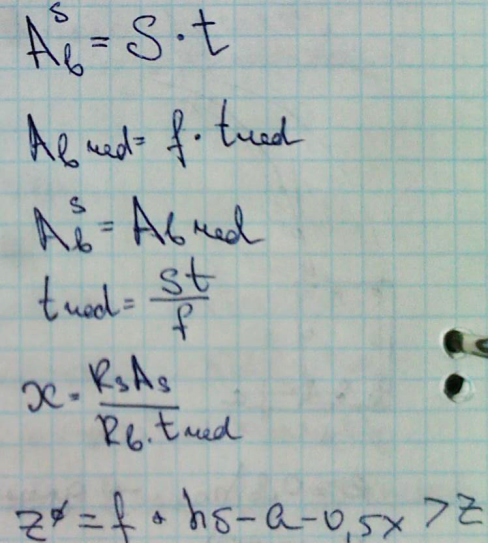 A_b^s = S · t
A_b red = f · t red
A_b^s = A_b red
t red = St / f
x = R_s A_s / R_b · t red
z* = f + h_s - a - 0,5x > z